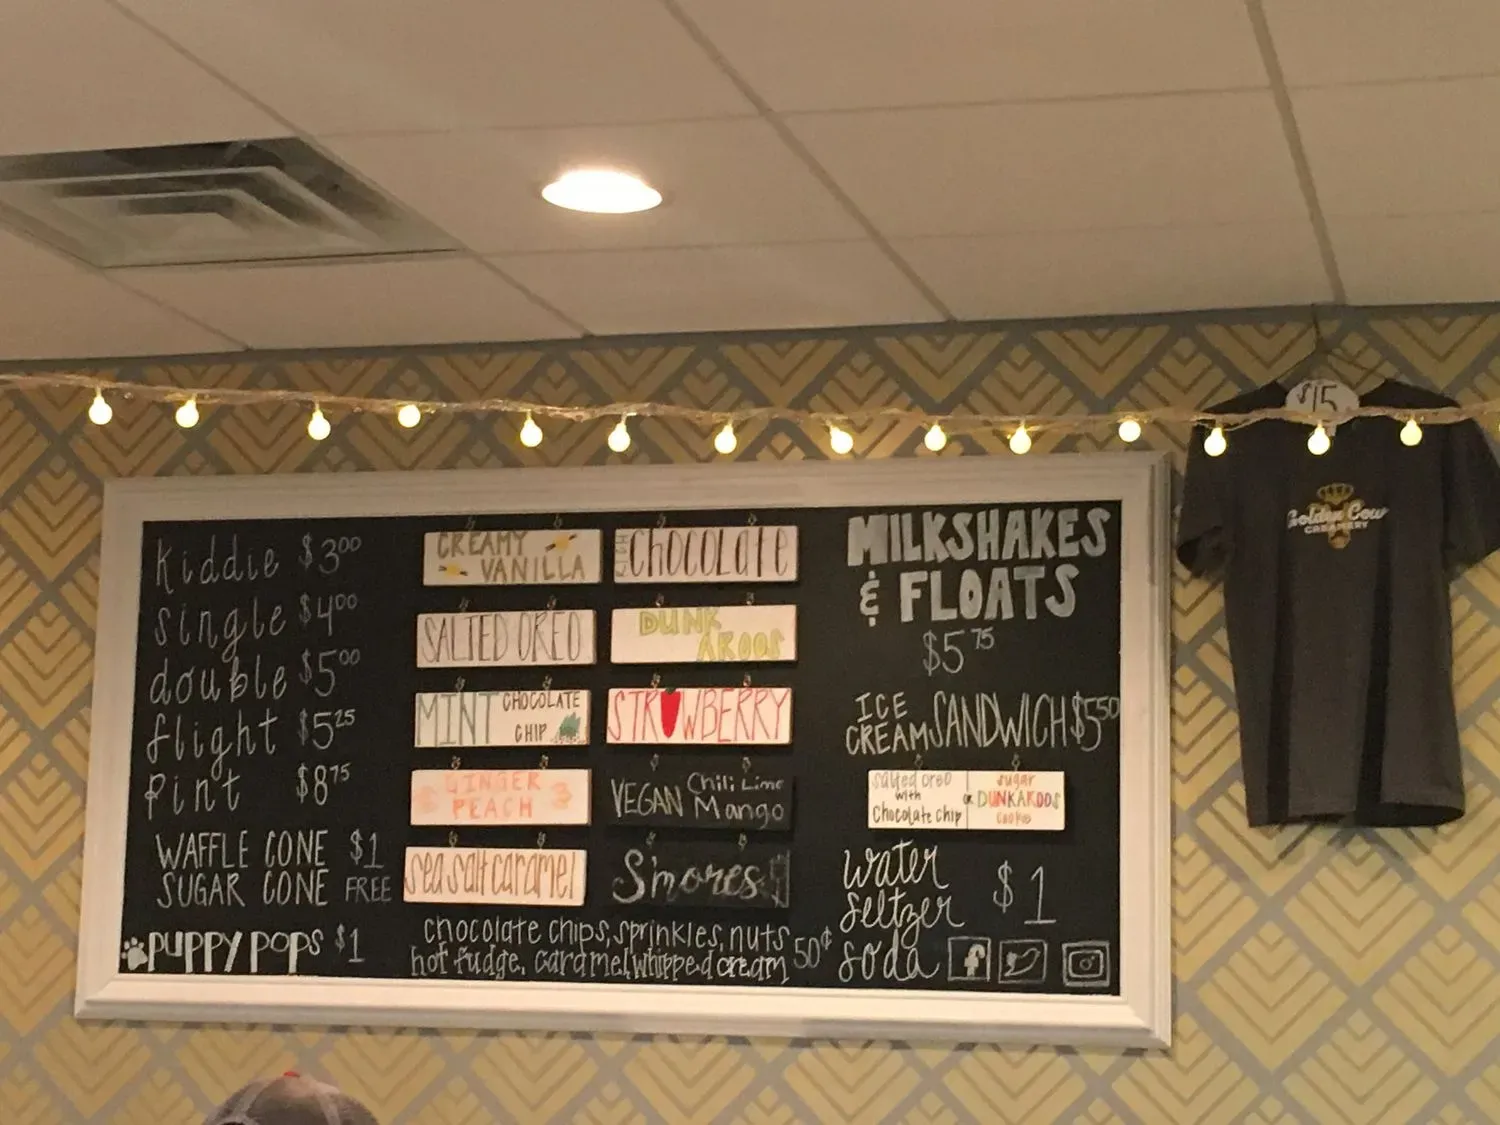 $15
Golden Cow
CREAMERY
kiddie $3.00
single $4.00
double $5.00
flight $5.25
Pint $8.75
WAFFLE CONE $1
SUGAR CONE FREE
PUPPY POPS $1
CREAMY
VANILLA
SALTED OREO
MINT CHOCOLATE
CHIP
GINGER
PEACH
sea salt caramel
chocolate
DUNK
AROOS
STRAWBERRY
VEGAN Chili Lime
Mango
S'mores
chocolate chips, sprinkles, nuts
hot fudge, caramel, whipped cream 50¢
MILKSHAKES
& FLOATS
$5.75
ICE
CREAM SANDWICH $5.50
salted oreo
with
chocolate chip
or
sugar
DUNKAROOS
cookie
water
seltzer $1
soda